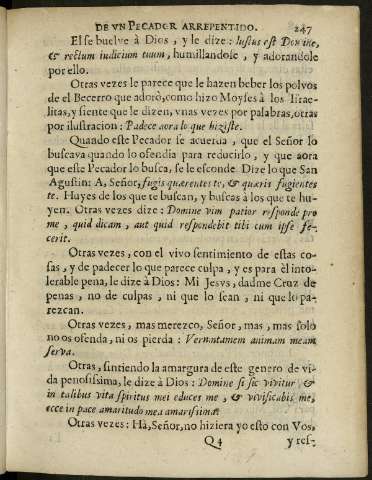 DE VN PECADOR ARREPENTIDO. 247
El se buelve à Dios, y le dize: Iustus est Domine,
& rectum iudicium tuum, humillandose, y adorandole
por ello.
Otras vezes le parece que le hazen beber los polvos
de el Becerro que adorò, como hizo Moyses à los Israe-
litas, y siente que le dizen, vnas vezes por palabras, otras
por ilustracion: Padece aora lo que hiziste.
Quando este Pecador se acuerda, que el Señor lo
buscava quando lo ofendia para reducirlo, y que aora
que este Pecador lo busca, se le esconde. Dize lo que San
Agustin: A, Señor, fugis quærentes te, & quæris fugientes
te. Huyes de los que te buscan, y buscas à los que te hu-
yen. Otras vezes dize: Domine vim patior responde pro
me, quid dicam, aut quid respondebit tibi cum ipse fe-
cerit.
Otras vezes, con el vivo sentimiento de estas co-
sas, y de padecer lo que parece culpa, y es para èl into-
lerable pena, le dize à Dios: Mi Jesvs, dadme Cruz de
penas, no de culpas, ni que lo sean, ni que lo pa-
rezcan.
Otras vezes, mas merezco, Señor, mas, mas solo
no os ofenda, ni os pierda: Veruntamem animam meam
serva.
Otras, sintiendo la amargura de este genero de vi-
da penosissima, le dize à Dios: Domine si sic vivitur &
in talibus vita spiritus mei educes me, & vivificabis me,
ecce in pace amaritudo mea amarissima.
Otras vezes: Hà, Señor, no hiziera yo esto con Vos,
Q4 y res-